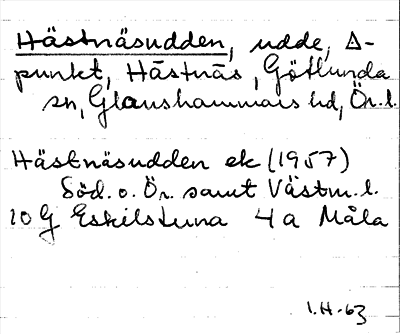 Hästnäsudden, udde, Δ-
punkt, Hästnäs, Götlunda
sn, Glanshammars hd, Ör.l.
Hästnäsudden ek (1957)
Söd. o. Ör. samt Västm. l.
10 G Eskilstuna 4a Måla
I.H-63